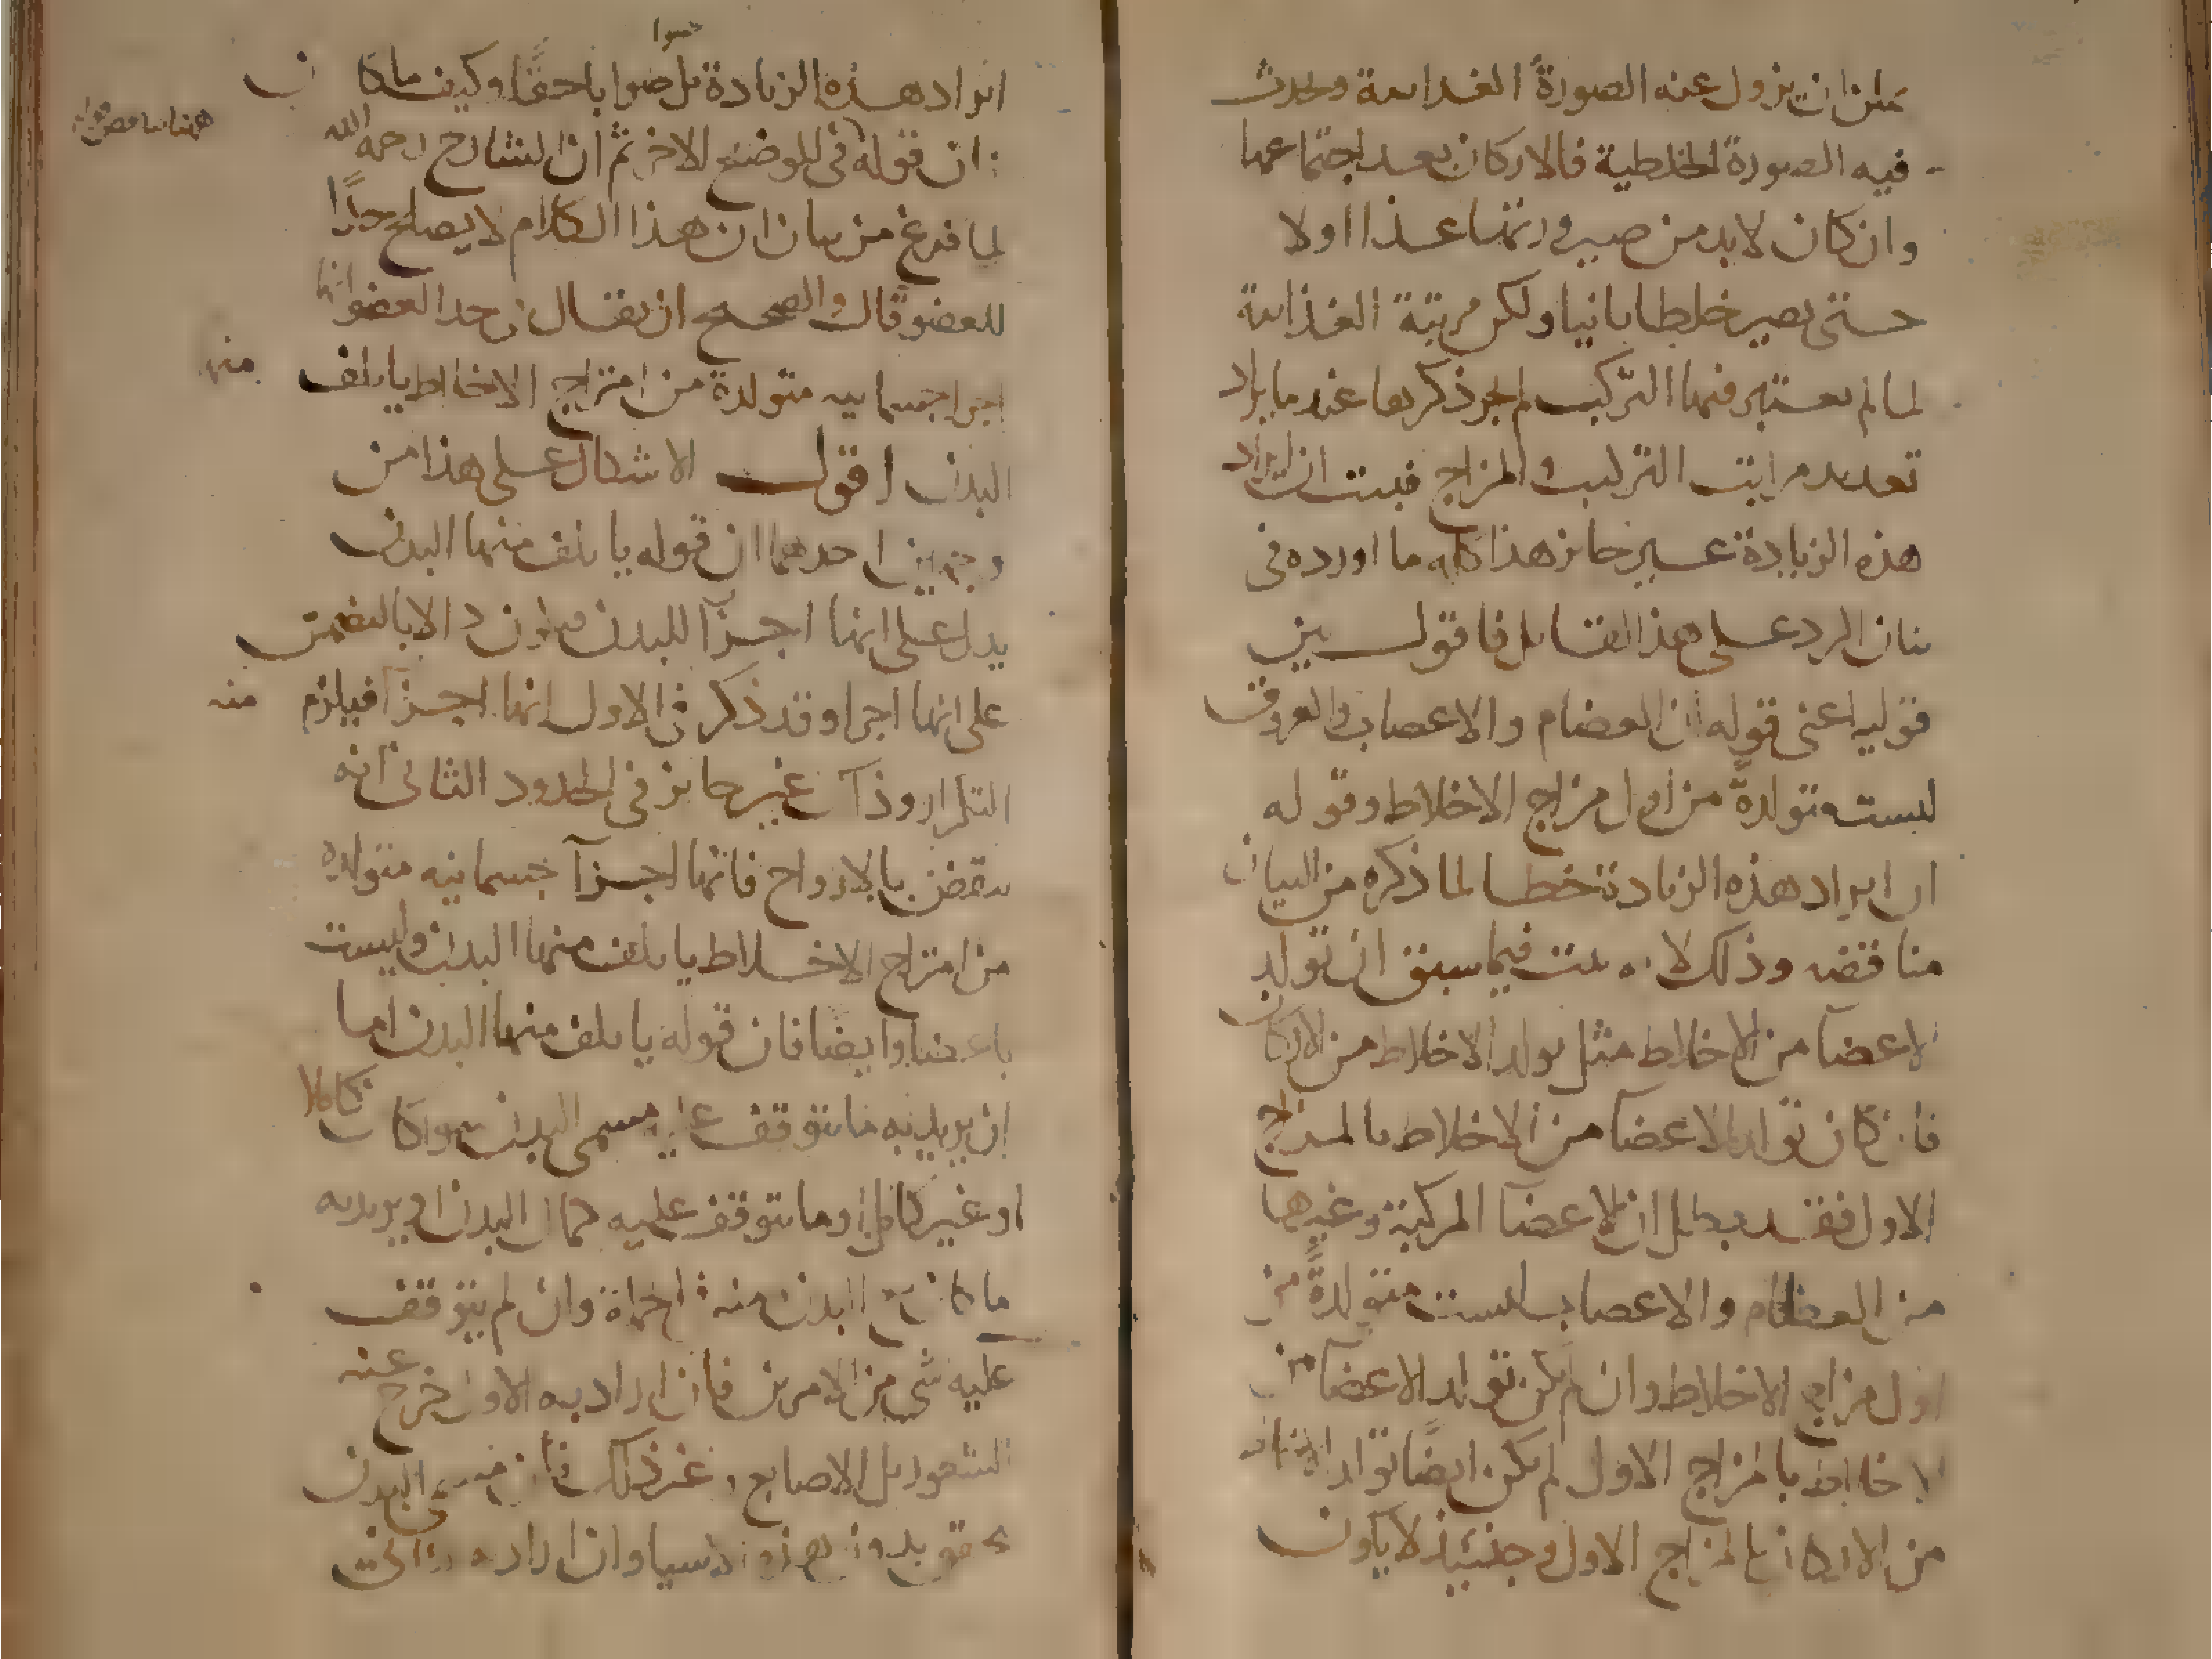 من ان يزول عنه الصورة الغدائية ويحدث
فيه الصورة الخلطية فالاركان بعد اجتماعها
وان كان لابد من صيرورتها غذاا اولا
حتى يصير خلطا ثانيا ولكن مرتبة الغذائية
لما لم يعتبر فيها التركيب لم يجز ذكرها عند ما يراد
تعديد مراتب التركيب والمزاج فبيت ان ايراد
هذه الزيادة غير جائز هذا كله ما اورده في
بيان الرد على هذا القائل فاقول بين
قوليه اعنى قوله ان العضام والاعصاب والعروق
ليست متولدة من اول مزاج الاخلاط وقوله
ان ايراد هذه الزيادة خطا لما ذكره من البيان
مناقضه وذلك لانه بيت فيما سبق ان تولد
الاعضآ من الاخلاط مثل تولد الاخلاط من الاركان
فان كان تولد الاعضآ من الاخلاط بالمزاج
الاول فقد بطل ان الاعضآ المركبة وغيرها
من العظام والاعصاب ليست متولدة من
اول مزاج الاخلاط وان لم يكن تولد الاعضآ من
الاخلاط بالمزاج الاول لم يكن ايضا تولد
من الاركان بالمزاج الاول وحينئذ لا يكون
ايراد هذه الزيادة بل صوابا حقا وكيف ما كان
ان قوله في الموضع الاخر ثم ان الشارح رحمه الله
لما فرغ من بيان ان هذا الكلام لا يصلح حدا
للعضو قال والصحيح ان يقال في حد العضو انها
اجزا جسمانيه متولدة من امتزاج الاخلاط ياتلف منها
البدن اقول الاشكال على هذا من
وجهين احدهما ان قوله ياتلف منها البدن
يدل على انها اجزآ للبدن الا بالتضمن
على انها اجزا وقد ذكر في الاول انها اجزآ فيلزم منه
التكرار وذآك غير جائز في الحدود الثاني انه
ينتقض بالارواح فانها اجزآ جسمانيه متولده
من امتزاج الاخلاط ياتلف منها البدن وليست
باعضا وايضا فان قوله ياتلف منها البدن اما
ان يريد به ما يتوقف عليه مسمى البدن سوا كان كاملا
او غير كامل او ما يتوقف عليه كمال البدن او يريد به
ما كان البدن منه وان لم يتوقف
عليه شي من الامرين فان اراد به الاول خرج عنه
الشعور بل الاصابع وغير ذلك فان مسمى البدن
يتحقق بدون هذه الاشيا وان اراد به الثاني